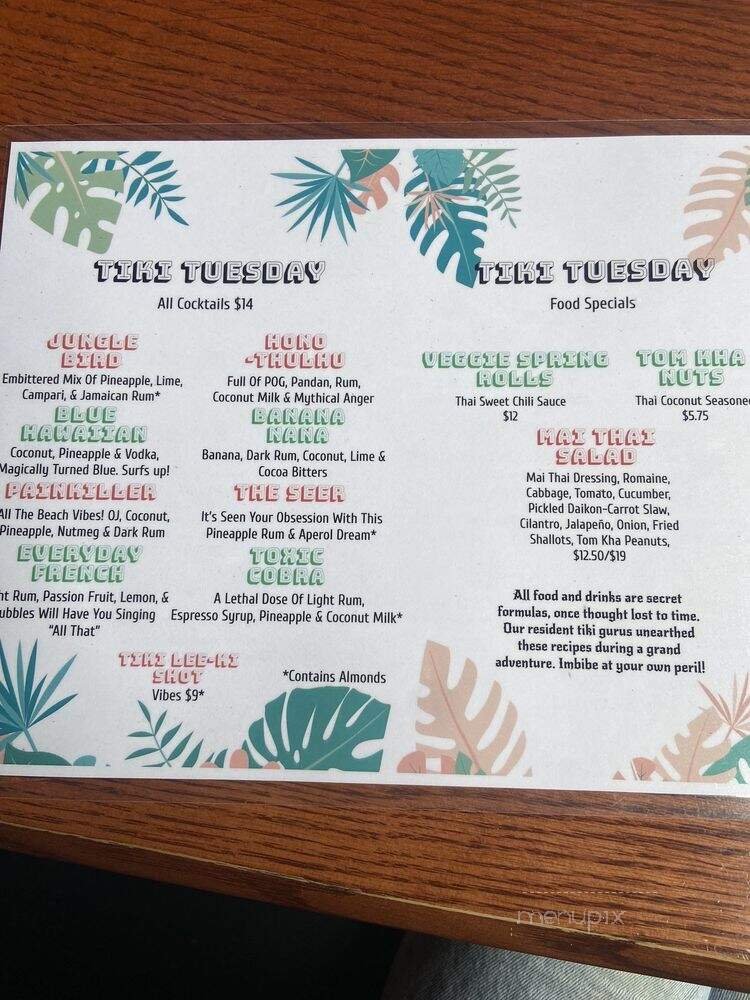 TIKI TUESDAY
All Cocktails $14
JUNGLE
BIRD
Embittered Mix Of Pineapple, Lime,
Campari, & Jamaican Rum*
HONO
-THULHU
Full Of POG, Pandan, Rum,
Coconut Milk & Mythical Anger
BLUE
HAWAIIAN
Coconut, Pineapple & Vodka,
Magically Turned Blue. Surfs up!
BANANA
NANA
Banana, Dark Rum, Coconut, Lime &
Cocoa Bitters
PAINKILLER
All The Beach Vibes! OJ, Coconut,
Pineapple, Nutmeg & Dark Rum
THE SEER
It's Seen Your Obsession With This
Pineapple Rum & Aperol Dream*
EVERYDAY
FRENCH
Rum, Passion Fruit, Lemon, &
Will Have You Singing
"All That"
TOXIC
COBRA
A Lethal Dose Of Light Rum,
Espresso Syrup, Pineapple & Coconut Milk*
TIKI LEE-KI
SHOT
Vibes $9*
*Contains Almonds
TIKI TUESDAY
Food Specials
VEGGIE SPRING
ROLLS
Thai Sweet Chili Sauce
$12
TOM KHA
NUTS
Thai Coconut Seasoned
$5.75
MAI THAI
SALAD
Mai Thai Dressing, Romaine,
Cabbage, Tomato, Cucumber,
Pickled Daikon-Carrot Slaw,
Cilantro, Jalapeño, Onion, Fried
Shallots, Tom Kha Peanuts,
$12.50/$19
All food and drinks are secret
formulas, once thought lost to time.
Our resident tiki gurus unearthed
these recipes during a grand
adventure. Imbibe at your own peril!
menupix